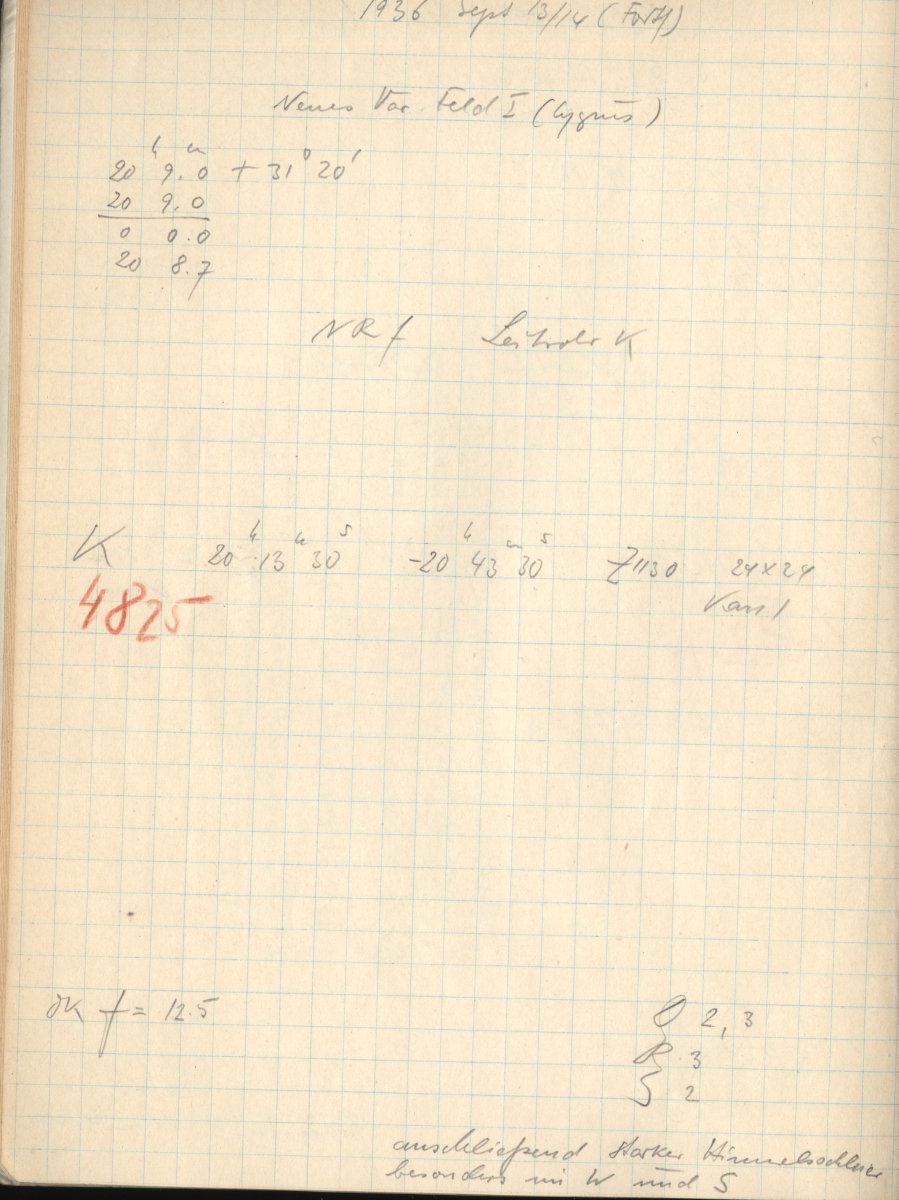 1936 Sept 13/14 (Forts)
Neues Var. Feld I (Cygnus)
20ʰ 9.ᵐ0 + 31° 20'
20 9.0
0 0.0
20 8.7
NR f Leitrohr K
K 20ʰ 13ᵐ 30ˢ -20ʰ 43ᵐ 30ˢ Z 1130 24x24
4825
K f = 12.5
Q 2,3
R 3
S 2
anschließend starker Himmelsschleier
besonders im W und S